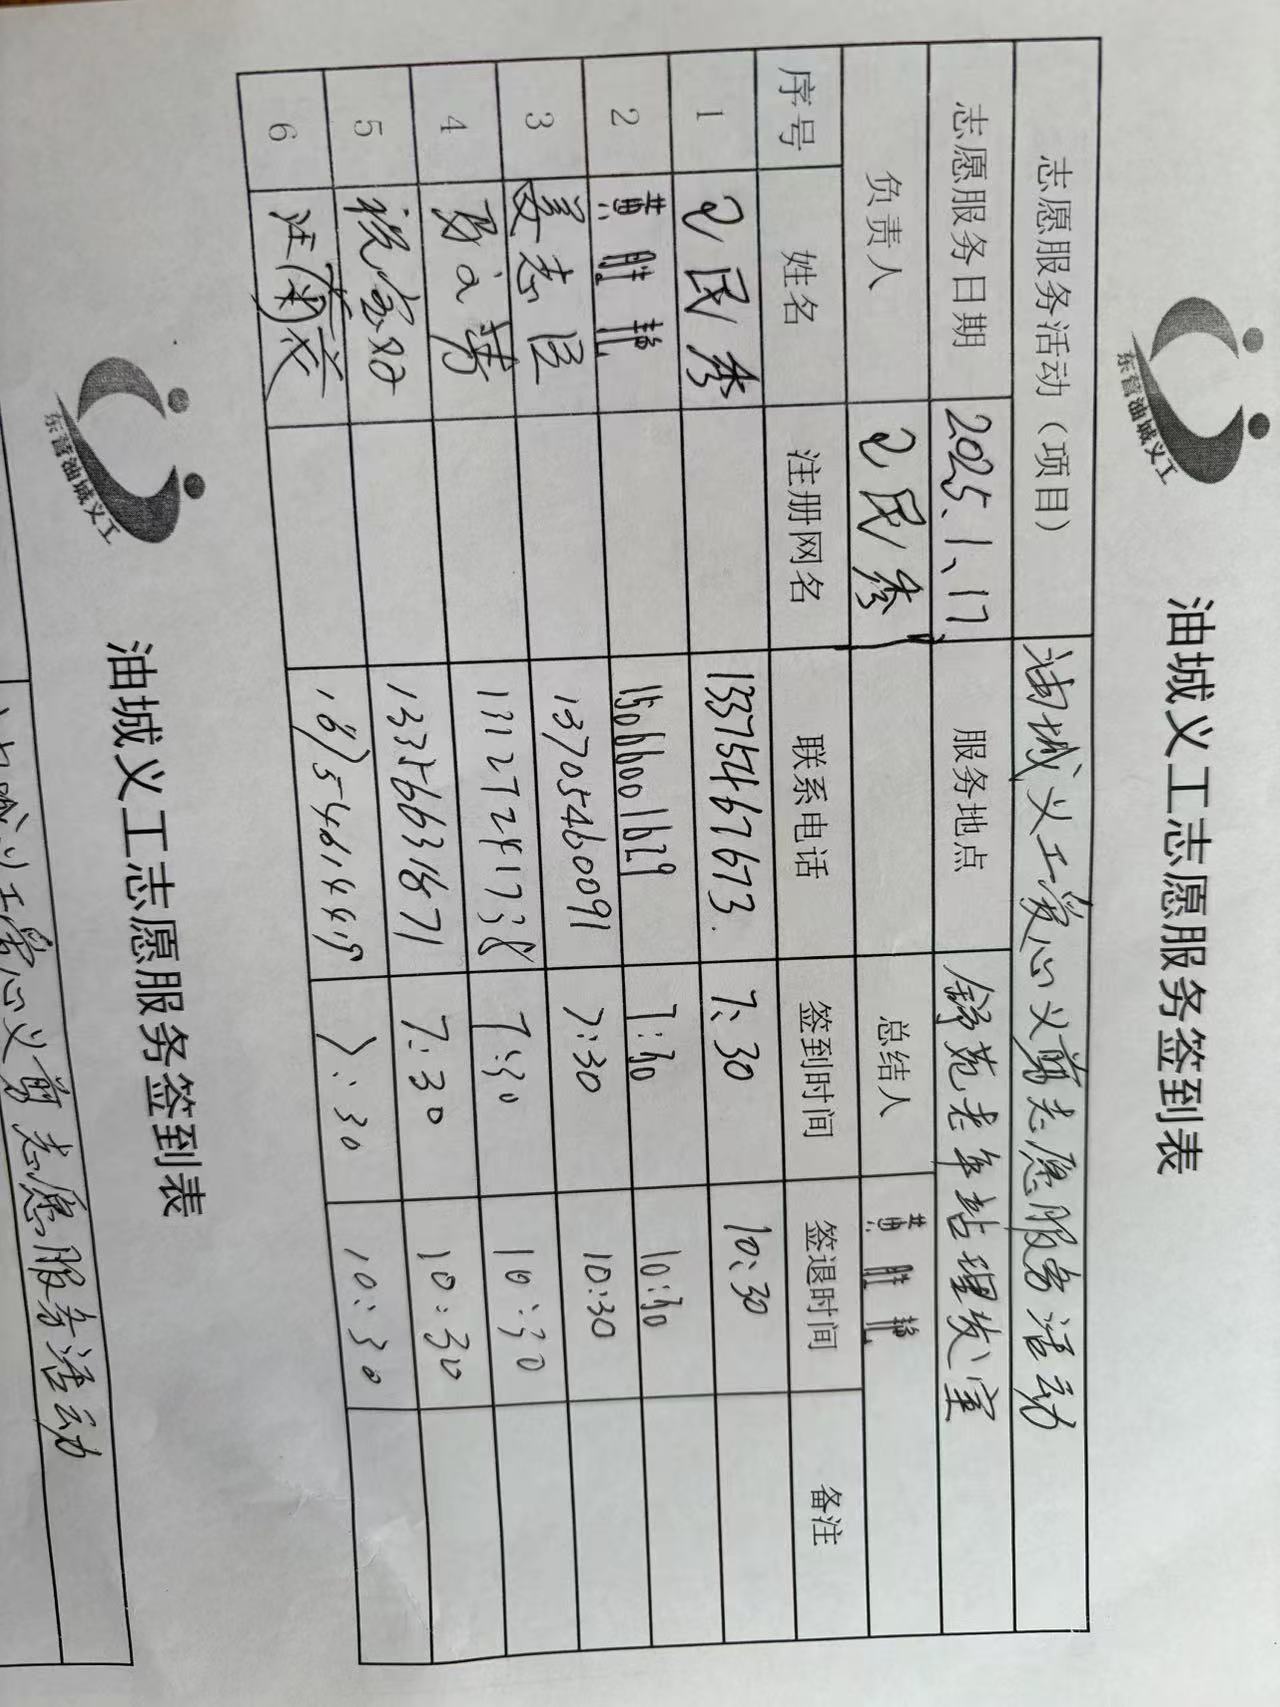 东营油城义工
油城义工志愿服务签到表
志愿服务活动（项目） 油城义工爱心义剪志愿服务活动
志愿服务日期 2025、1、17 服务地点 锦苑老年站理发室
负责人 民秀 总结人 黄胜艳
序号 姓名 注册网名 联系电话 签到时间 签退时间 备注
1 民秀 13375467673. 7:30 10:30
2 黄胜艳 15066001629 7:30 10:30
3 志 13705460091 7:30 10:30
4 13127241738 7:30 10:30
5 13356631871 7:30 10:30
6 7:30 10:30
东营油城义工
油城义工志愿服务签到表
油城义工爱心义剪志愿服务活动